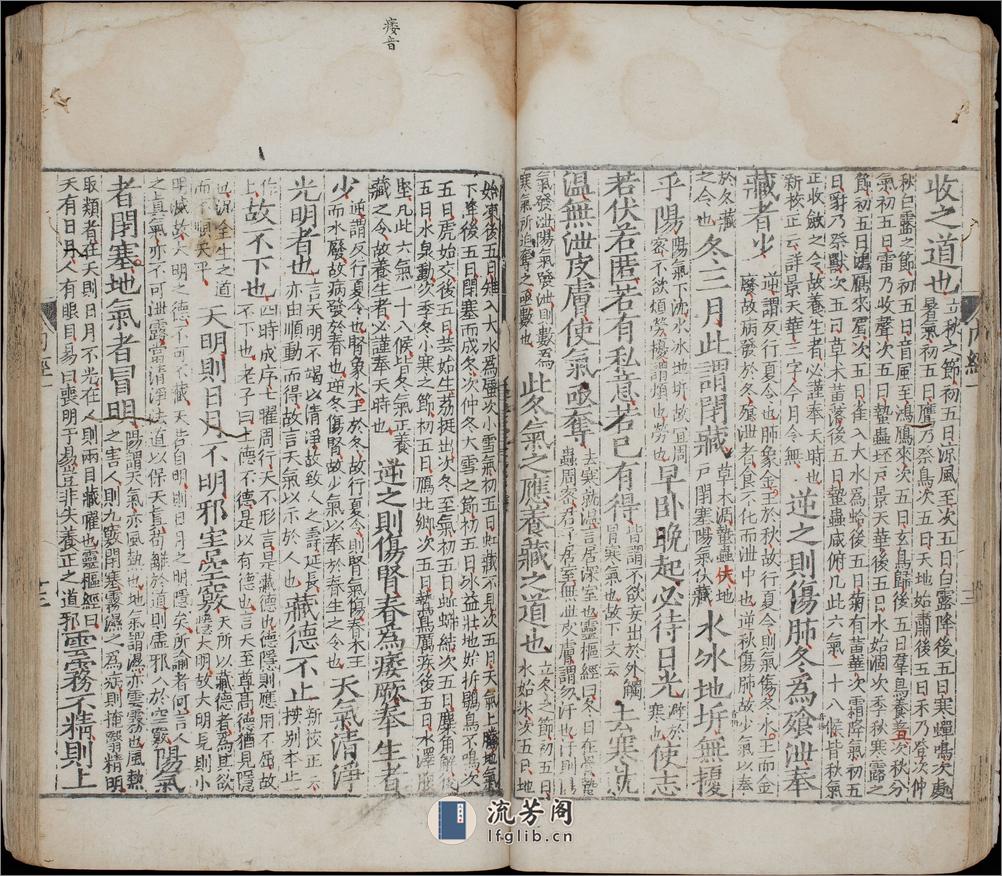 收之道也 立秋之節初五日凉風至次五日白露降後五日寒蟬鳴次處
暑氣初五日鷹乃祭鳥次五日天地始肅後五日禾乃登次仲
秋白露之節初五日盲風至鴻鴈來次五日玄鳥歸後五日羣鳥養羞次秋分
氣初五日雷乃收聲次五日蟄蟲坯戸景天華後五日水始涸次季秋寒露之
節初五日鴻鴈來賓次五日雀入大水為蛤後五日菊有黄華次霜降氣初五
日豺乃祭獸次五日草木黄落後五日蟄蟲咸俯凡此六氣一十八候皆秋氣
正收斂之令故養生者必謹奉天時也
新校正云詳景天華三字今月令無 逆之則傷肺冬為飧泄奉
藏者少 逆謂反行夏令也肺象金王於秋故行夏令則氣傷冬水王而金
廢故病發於冬飧泄者食不化而泄出也逆秋傷肺故少氣以奉
於冬藏
之令也 冬三月此謂閉藏 草木凋蟄蟲伏地
戸閉塞陽氣伏藏 水冰地坼無擾
乎陽 陽氣下沈水冰地坼故宜周
密不欲煩勞擾謂煩也勞也 早卧晚起必待日光 避於
寒也 使志
若伏若匿若有私意若已有得 皆謂不欲妄出於外觸
冒寒氣也故下文云 去寒就
温無泄皮膚使氣亟奪 去寒就温言居深室也靈樞經曰冬日在骨蟄
蟲周密君子居室無泄皮膚謂勿汗也汗則
氣發泄陽氣發泄則數為
寒氣所迫奪之亟數也 此冬氣之應養藏之道也 立冬之節初五日
水始冰次五日地
始凍後五日雉入大水為蜃次小雪氣初五日虹藏不見次五日天氣上騰地氣
下降後五日閉塞而成冬次仲冬大雪之節初五日冰益壯地始坼鶡鳥不鳴次
五日虎始交後五日芸始生荔挺出次冬至氣初五日蚯蚓結次五日麋角解後
五日水泉動次季冬小寒之節初五日鴈北鄉次五日鵲始巢後
堅凡此六氣一十八候皆冬氣正養
藏之令故養生者必謹奉天時也 逆之則傷腎春為痿厥奉生者
少 逆謂反行夏令也腎象水王於冬故行夏令則腎氣傷春木王
而水廢故病發於春也逆冬傷腎故少氣以奉於春生之令也 天氣清淨
光明者也 言天明不竭以清淨故致人之壽延長
亦由順動而得故言天氣以示於人也 藏德不止 新校正云
按别本止
作上 故不下也 四時成序七曜周行天不形言是藏德也德隱則應用不屈故
不下也老子曰上德不德是以有德也言天至尊高德猶見
隱也況全生之道
而不順天乎 天明則日月不明邪害空竅 天所以藏德者為其欲
隱大明故大明見則小
明滅故大明之德不可不藏天若自明則日月之明隱矣所諭者何言人
之真氣亦不可泄露當清淨法道以保天真苟離於道則虚邪入於空竅 陽氣
者閉塞地氣者冒明 陽謂天氣亦風熱也地氣謂濕亦雲霧也風熱
之害人則九竅閉塞霧濕之為病則掩翳精明
取類者在天則日月不光在人則兩目藏曜也靈樞經曰
天有日月人有眼目易曰喪明于易豈非失養正之道邪 雲霧不精則上
内經一
内經一
十三
痿音
流芳阁
lfglib.cn